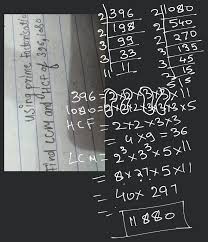 Using prime factorisation
Find LCM and HCF of 396, 1080
2 | 396
2 | 198
3 | 99
3 | 33
11 | 11
2 | 1080
2 | 540
2 | 270
3 | 135
3 | 45
3 | 15
5
396 = 2×2×3×3×11
1080 = 2×2×2×3×3×3×5
HCF = 2×2×3×3
= 4×9 = 36
LCM = 2³×3³×5×11
= 8×27×5×11
= 40×297
11880